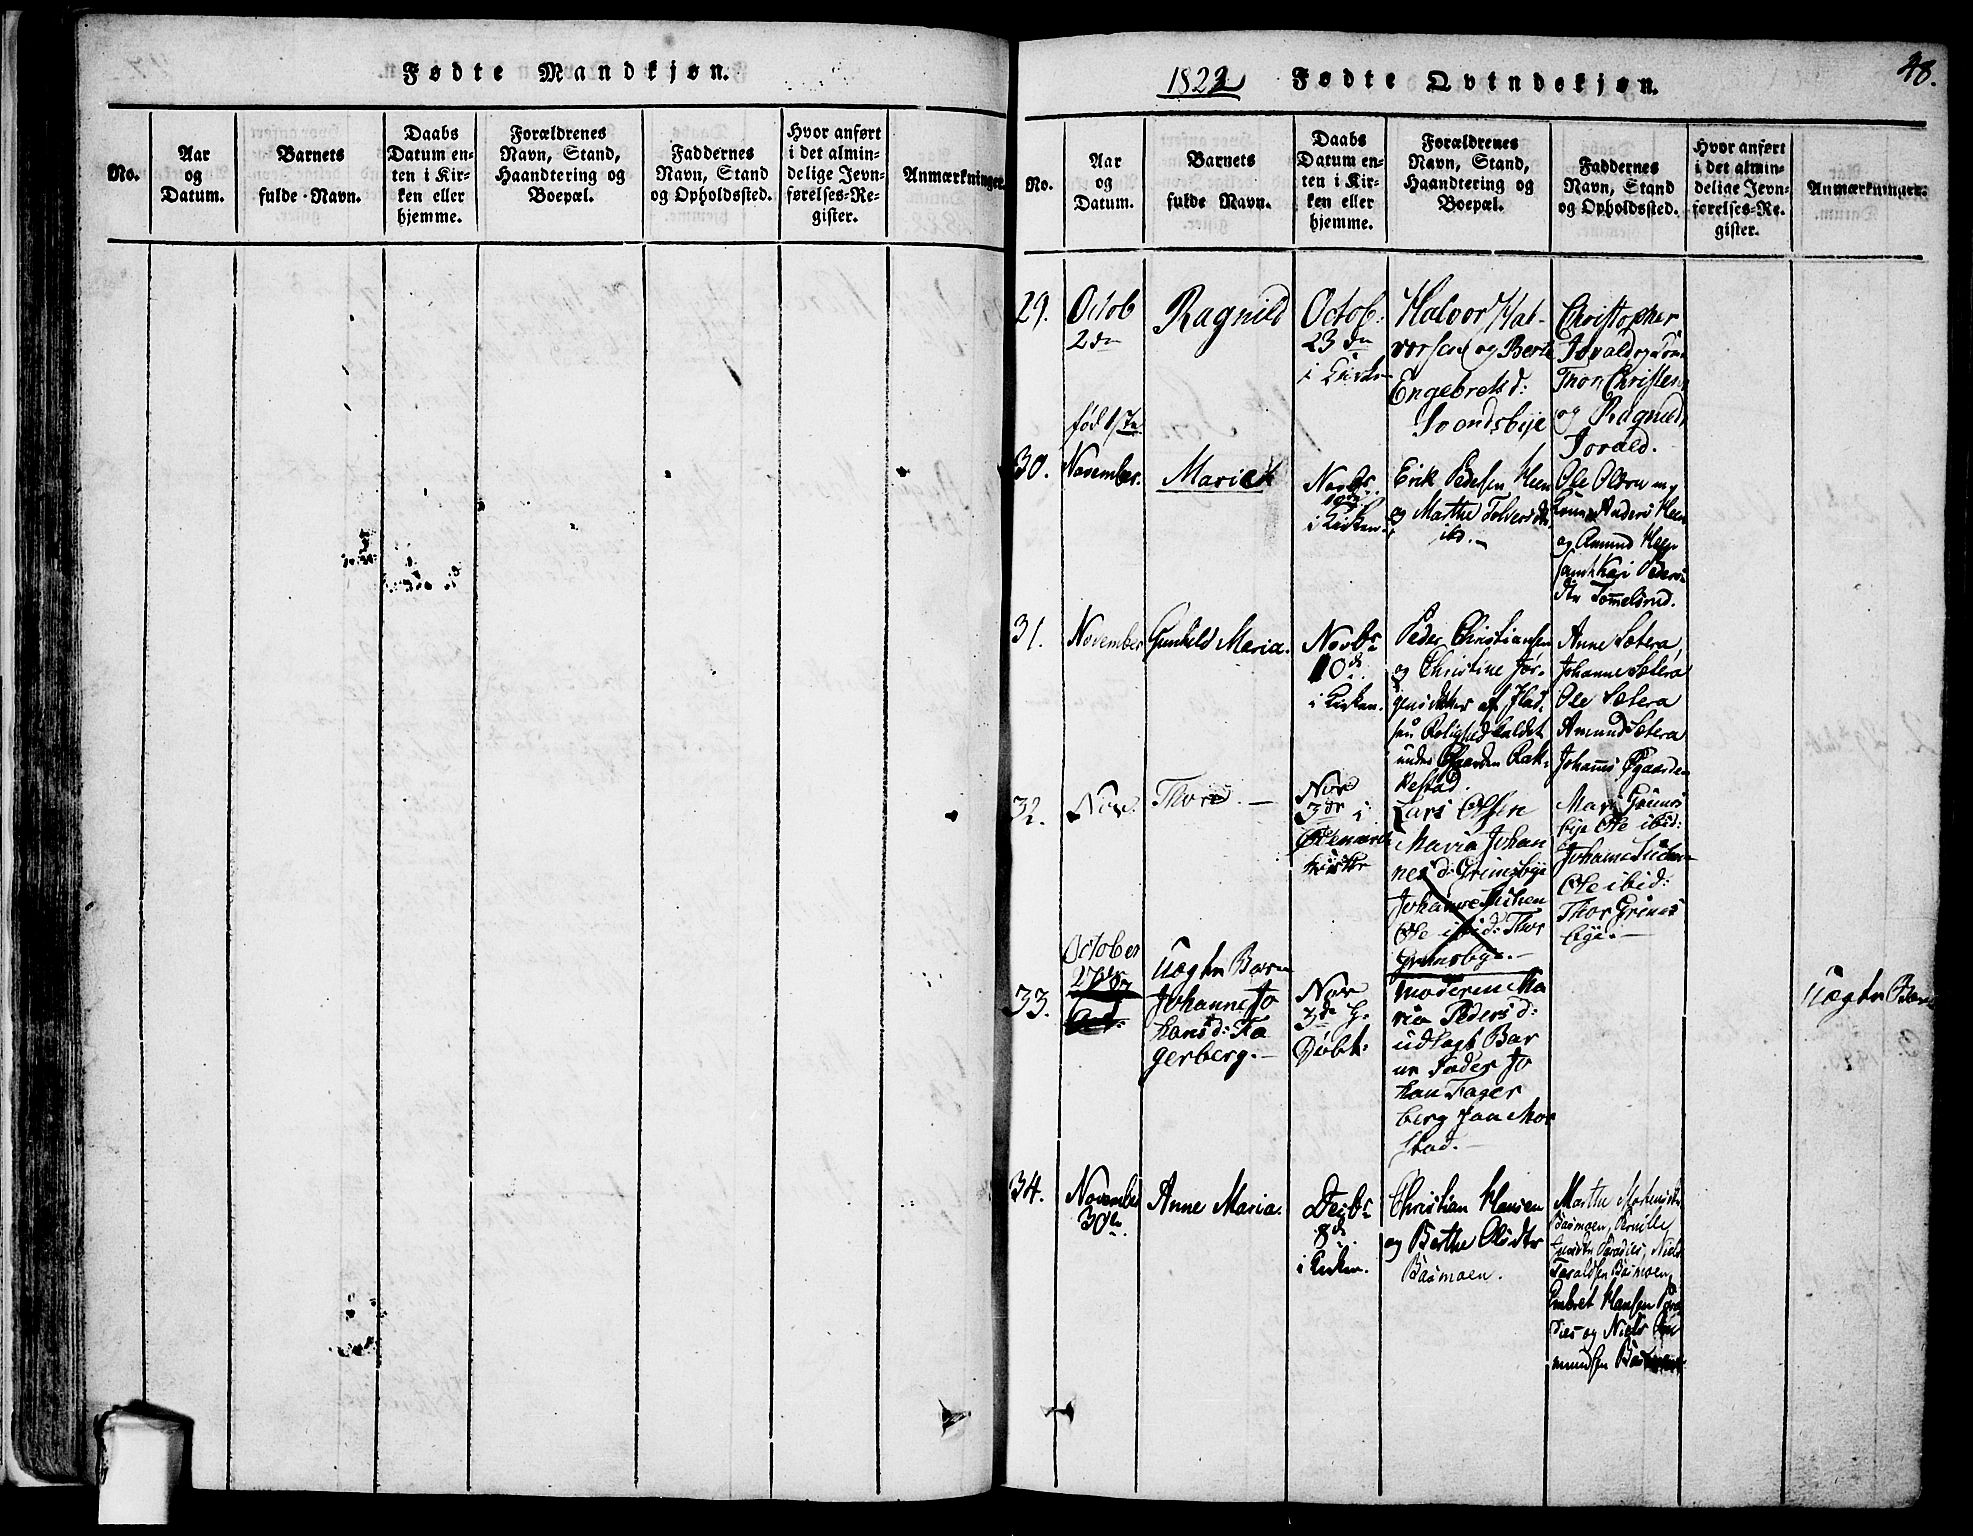 Fødte Mandkjøn.
No.
Aar
og
Datum.
Barnets
fulde Navn.
Daabs
Datum en-
ten i Kir-
ken eller
hjemme.
Forældrenes
Navn, Stand,
Haandtering og
Boepæl.
Faddernes
Navn, Stand
og Opholdssted.
Hvor anført
i det almin-
delige Jevn-
førelses-Re-
gister.
Anmærkninger.
1822 Fødte Qvindekjøn.
48.
No.
Aar
og
Datum.
Barnets
fulde Navn.
Daabs
Datum en-
ten i Kir-
ken eller
hjemme.
Forældrenes
Navn, Stand,
Haandtering og
Boepæl.
Faddernes
Navn, Stand
og Opholdssted.
Hvor anført
i det almin-
delige Jevn-
førelses-Re-
gister.
Anmærkninger.
29.
Octob
2dn
Ragnild
Octob:
23dn
i Kirke
Halvor Hal-
vorsen og Berte
Engebretsd:
Svendsbye
Christopher
Jorald og
Thor Christens
og Ragnild
Jorald.
30.
fød 1/7
November.
Marie
Novbr
10de
i Kirken.
Erik Pedersen Heen
og Marthe
ibd.
Ole
Anders Heen
og Amund Heen
samt Kari Peders
dtr Tommelsrud.
31.
November
Gunhild Maria.
Novbr
10d.
i Kirken.
Peder Christiansen
og Christine Jør-
gensdatter af Plad-
sen Rolighed kaldet
under Øgaarden Rak-
kestad.
Anne Sætera,
Johanne Sætera
Ole Sætera
Amund Sætera
Johanns Øgaarden
32.
Nov.
Thore.
Nov
3de i
Ødemark
kirke
Lars Olsen
Maria Johan
nesd: Grimsbye
Johanne
Ole ibid: Thor
Grimsbye.
Mari Grims
bye Ole ibid:
Johanne
Ole ibid:
Thor Grims
bye.
33.
October
27de
Uægte Barn
Johanne Jo
hansd: Fa
gerberg.
Nov
3de H.
Døbt.
Moderen Ma
ria Pedersd:
udlagt Bar
ne Fader Jo
han Fager
berg paa Mor
stad.
Uægte Barn
34.
November
30te
Anne Maria.
Decbr
8d.
i Kirken.
Christian Hansen
og Berthe Olsdtr
Basmoen.
Marthe
Basmoen, Pernille
Paradies, Niels
Taraldsen Basmoen,
Embret Hansen Para
dies og Niels
mundsen